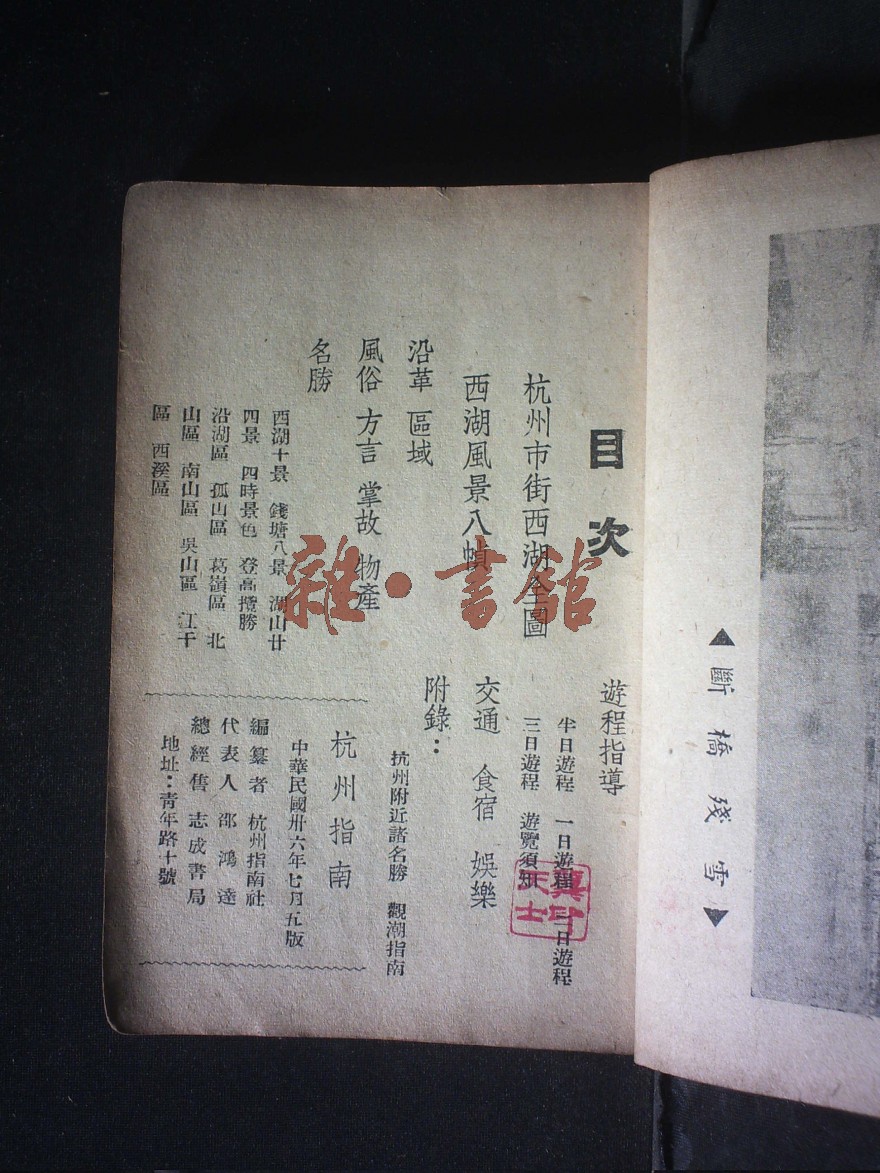 目次
杭州市街西湖全圖
西湖風景八幀
沿革 區域
風俗 方言 掌故 物產
名勝
西湖十景 錢塘八景 湖山廿
四景 四時景色 登高攬勝
沿湖區 孤山區 葛嶺區 北
山區 南山區 吳山區 江干
區 西溪區
遊程指導
半日遊程 一日遊程 二日遊程
三日遊程 遊覽須知
交通 食宿 娛樂
附錄：
杭州附近諸名勝 觀潮指南
杭州指南
中華民國卅六年七月五版
編纂者 杭州指南社
代表人 邵鴻達
總經售 志成書局
地址：青年路十號
▲斷橋殘雪▼
雜·書館